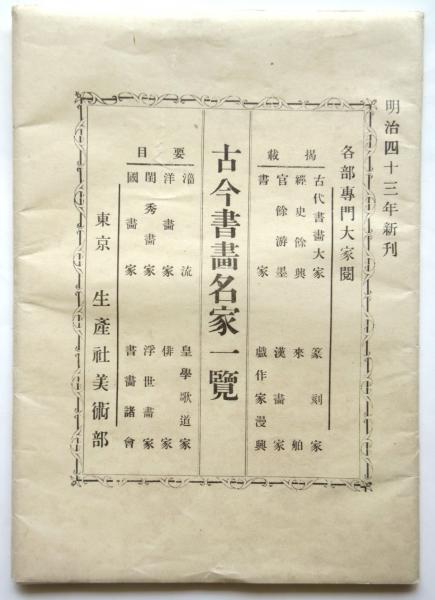 明治四十三年新刊
各部專門大家閱
揭載
古代書畫大家　篆刻家
經史餘興　來舶
官餘游墨　漢畫家
書家　戲作家漫興
古今書畫名家一覽
要目
淄流　皇學歌道家
洋畫家　俳家
閨秀畫家　浮世畫家
國畫家　書畫諸會
東京　生產社美術部